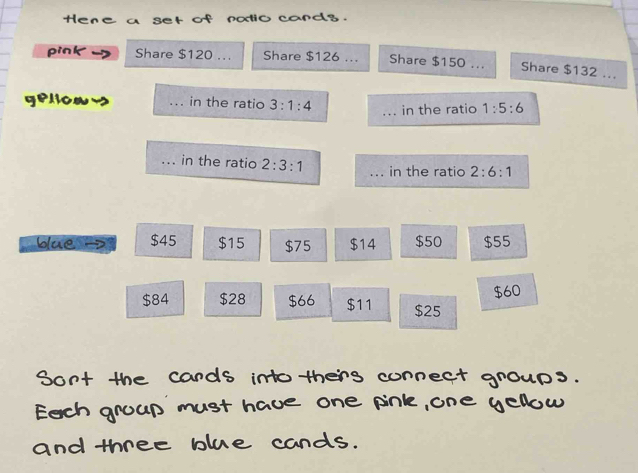 Here a set of ratio cards.
pink → Share $120 ... Share $126 ... Share $150 ... Share $132 ...
yellow → ... in the ratio 3:1:4 ... in the ratio 1:5:6
... in the ratio 2:3:1 ... in the ratio 2:6:1
blue → $45 $15 $75 $14 $50 $55
$84 $28 $66 $11 $25 $60
Sort the cards into theirs correct groups.
Each group must have one pink, one yellow
and three blue cards.